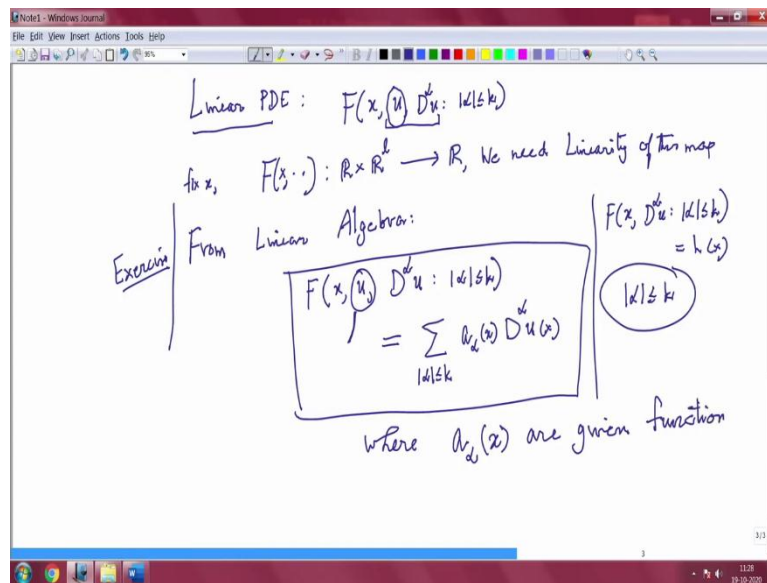 Note1 - Windows Journal
File Edit View Insert Actions Tools Help
Linear PDE : F(x, u, D^α u : |α| ≤ k)
fix x, F(x, ·, ·) : ℝ × ℝ^l → ℝ, We need Linearity of this map
Exercise
From Linear Algebra:
F(x, u, D^α u : |α| ≤ k)
= Σ_{|α| ≤ k} a_α(x) D^α u(x)
where a_α(x) are given function
F(x, D^α u : |α| ≤ k)
= h(x)
|α| ≤ k
3/3
3
11:28
19-10-2020